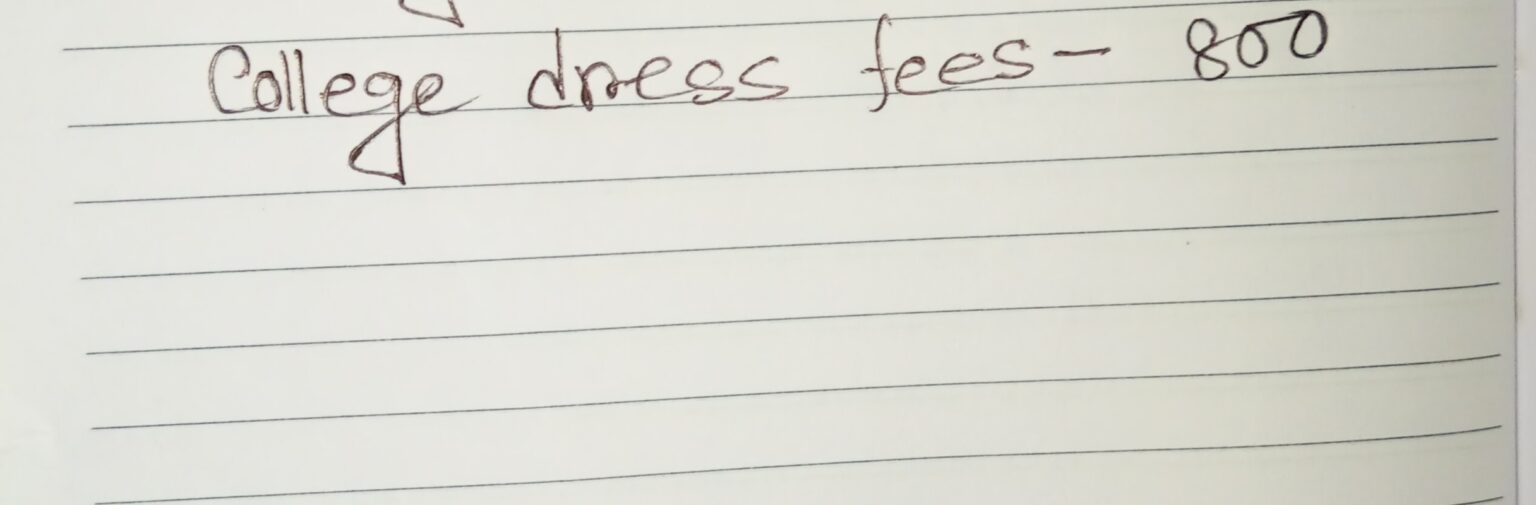 College dress fees- 800